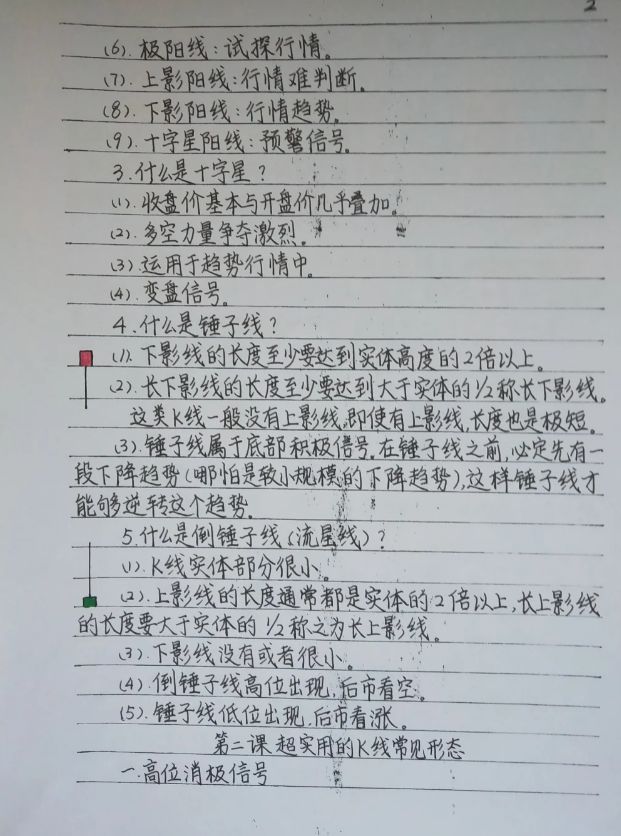 2
(6). 极阳线：试探行情。
(7). 上影阳线：行情难判断。
(8). 下影阳线：行情趋势。
(9). 十字星阳线：预警信号。
3. 什么是十字星？
(1). 收盘价基本与开盘价几乎叠加。
(2). 多空力量争夺激烈。
(3). 运用于趋势行情中。
(4). 变盘信号。
4. 什么是锤子线？
(1). 下影线的长度至少要达到实体高度的2倍以上。
(2). 长下影线的长度至少要达到大于实体的1/2称长下影线。
这类K线一般没有上影线,即使有上影线,长度也是极短。
(3). 锤子线属于底部积极信号.在锤子线之前,必定先有一
段下降趋势(哪怕是较小规模的下降趋势),这样锤子线才
能够逆转这个趋势.
5. 什么是倒锤子线(流星线)？
(1). K线实体部分很小。
(2). 上影线的长度通常都是实体的2倍以上,长上影线
的长度要大于实体的1/2称之为长上影线。
(3). 下影线没有或者很小。
(4). 倒锤子线高位出现,后市看空。
(5). 锤子线低位出现.后市看涨。
第二课 超实用的K线常见形态
一.高位消极信号